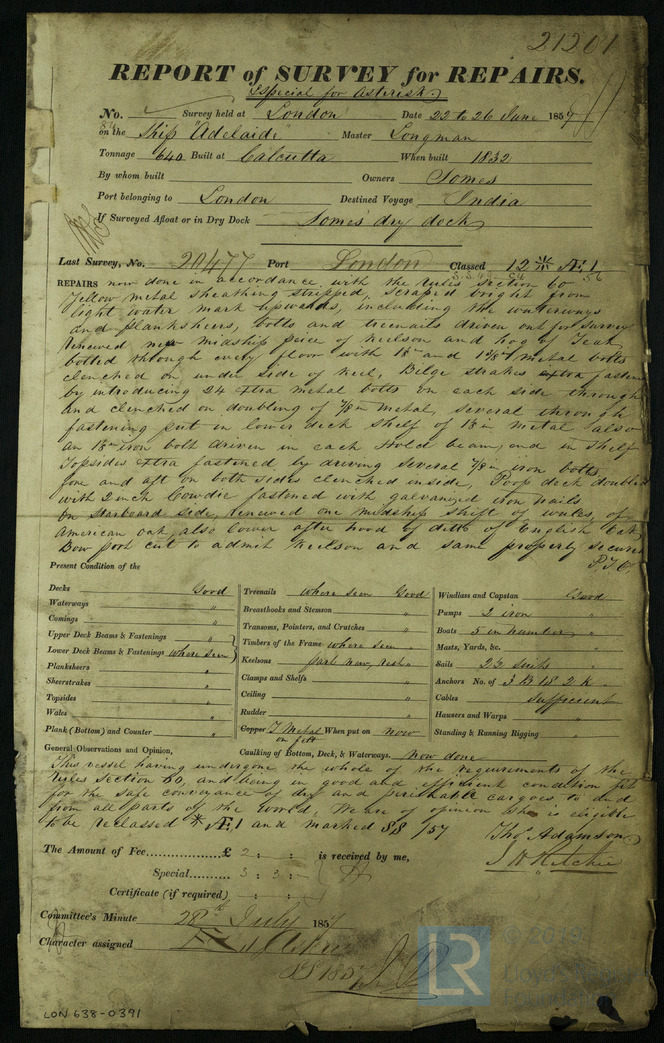 21201
REPORT of SURVEY for REPAIRS.
Special for Asterisk
No. Survey held at London Date 22 to 26 June 1857
on the Ship "Adelaide" Master Longman
Tonnage 640 Built at Calcutta When built 1832
By whom built Owners Somes
Port belonging to London Destined Voyage India
If Surveyed Afloat or in Dry Dock Somes dry dock
Last Survey, No. 20477 Port London Classed 12 * Æ 1
REPAIRS now done in accordance with the Rules Section 60
Yellow metal sheathing stripped, scraped bright from
light water mark upwards, including the waterways
and planksheers, bolts and treenails driven out for survey
Renewed new midship piece of Keelson and hog of Teak,
bolted through every floor with 1 1/8 in and metal bolts
clenched on under side of Keel, Bilge strakes extra fastened
by introducing 24 Extra metal bolts on each side through
and clenched on doubling of 7/8 in metal, several through
fastening put in lower deck shelf of metal also
an iron bolt driven in each Hold beam, and in Shelf
Topsides Extra fastened by driving several 7/8 in iron bolts,
fore and aft on both sides clenched inside, Poop deck doubled
with 2 inch Cowdie fastened with galvanized iron nails
On Starboard side, renewed one midship shift of wales, of
American oak, also lower after hood of ditto of English Oak,
Bow port cut to admit Keelson and same properly secured
P.T.O.
Present Condition of the
Decks Good
Waterways "
Comings "
Upper Deck Beams & Fastenings "
Lower Deck Beams & Fastenings where seen
Planksheers "
Sheerstrakes "
Topsides "
Wales "
Plank (Bottom) and Counter "
Treenails where seen Good
Breasthooks and Stemson "
Transoms, Pointers, and Crutches "
Timbers of the Frame where seen "
Keelsons part new, rest "
Clamps and Shelfs "
Ceiling "
Rudder "
Copper Y Metal on felt When put on now
Caulking of Bottom, Deck, & Waterways. Now done
Windlass and Capstan Good
Pumps 2 iron "
Boats 5 in number "
Masts, Yards, &c. "
Sails 2½ suits "
Anchors No. of 3 B 1 S 2 K
Cables sufficient
Hausers and Warps "
Standing & Running Rigging
General Observations and Opinion,
This vessel having undergone the whole of the requirements of the
Rules Section 60, and being in good and efficient condition fit
for the safe conveyance of dry and perishable cargoes to and
from all parts of the World, We are of opinion she is eligible
to be reclassed * Æ 1 and marked SS/57
Thos Adamson
J H Ritchie
The Amount of Fee............... £ 2 : - : - is received by me,
Special......... 3 : 3 : -
Certificate (if required) - : - :
Committee's Minute 28th July 1857
Character assigned
LR
LON 638-0391